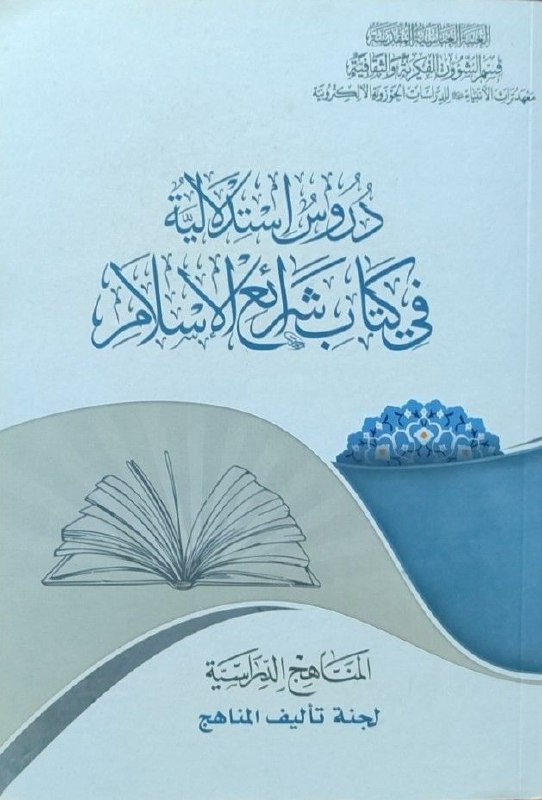 العتبة العباسية المقدسة
قسم الشؤون الفكرية والثقافية
معهد تراث الأنبياء للدراسات الحوزوية الالكترونية
دُرُوسٌ اسْتِدْلَالِيَّة
فِي كِتَابِ شَرَائِعِ الْإِسْلَامِ
المَنَاهِج الدِّرَاسِيَّة
لجنة تأليف المناهج